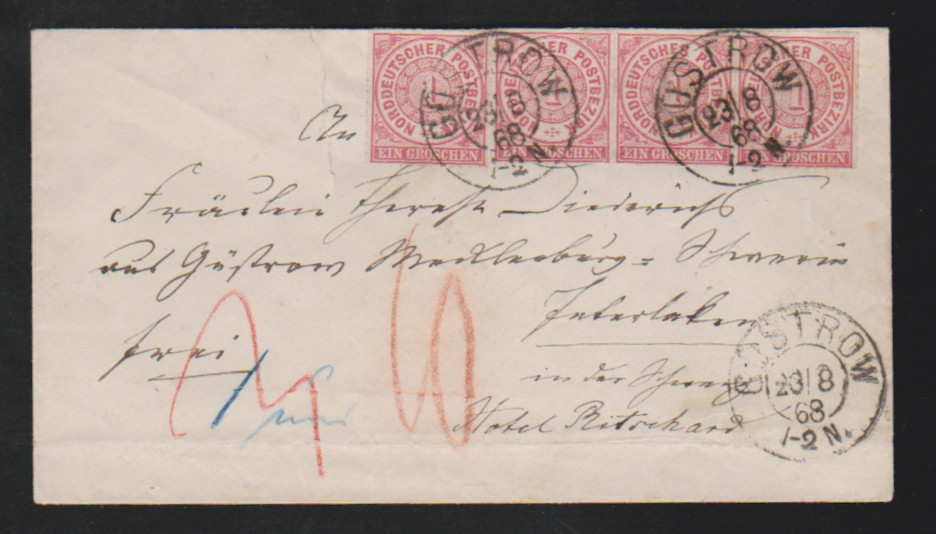 NORDDEUTSCHER POSTBEZIRK 1 EIN GROSCHEN
NORDDEUTSCHER POSTBEZIRK 1 EIN GROSCHEN
NORDDEUTSCHER POSTBEZIRK 1 EIN GROSCHEN
NORDDEUTSCHER POSTBEZIRK 1 EIN GROSCHEN
GÜSTROW
23/8
68
1-2 N.
GÜSTROW
23/8
68
1-2 N.
An
Fräulein Therese Diederichs
aus Güstrow Mecklenburg = Schwerin
Interlaken
frei
in der Schweiz
Hotel Ritschard
GÜSTROW
23/8
68
1-2 N.